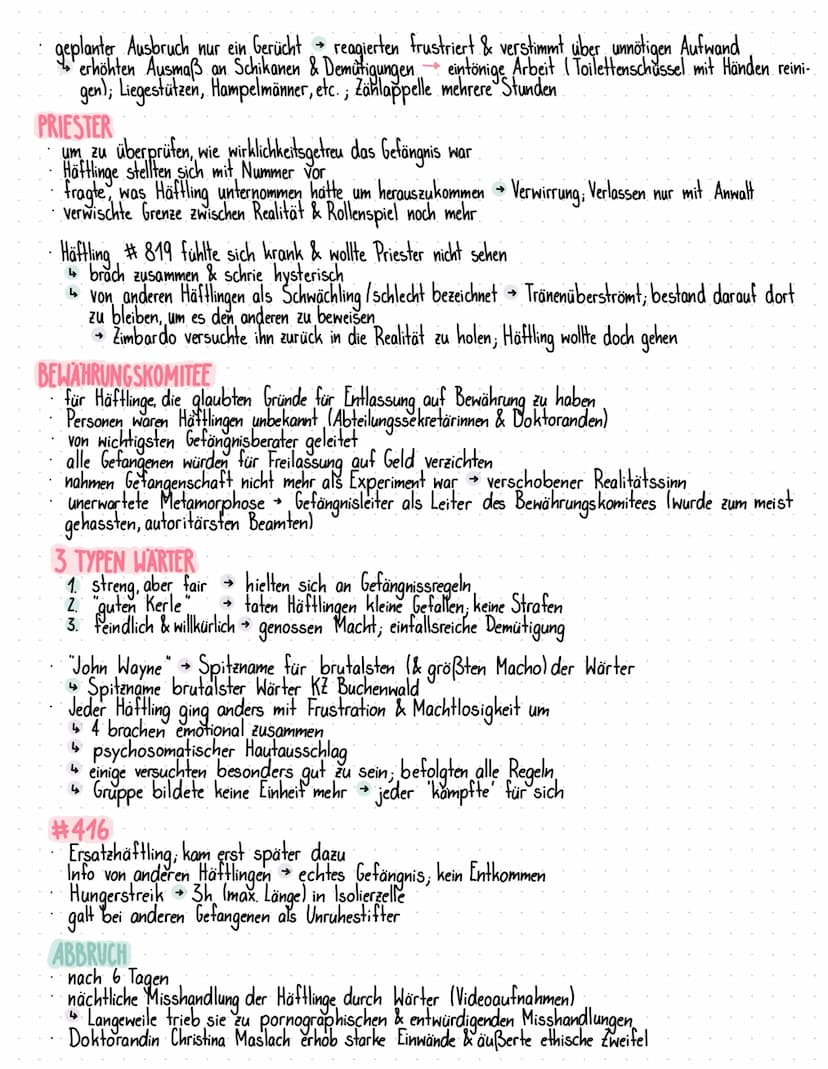 · geplanter Ausbruch nur ein Gerücht → reagierten frustriert & verstimmt über unnötigen Aufwand
↳ erhöhten Ausmaß an Schikanen & Demütigungen → eintönige Arbeit (Toilettenschüssel mit Händen reini-
gen); Liegestützen, Hampelmänner, etc. ; Zählappelle mehrere Stunden
PRIESTER
· um zu überprüfen, wie wirklichkeitsgetreu das Gefängnis war
· Häftlinge stellten sich mit Nummer vor
· fragte, was Häftling unternommen hatte um herauszukommen → Verwirrung; Verlassen nur mit Anwalt
· verwischte Grenze zwischen Realität & Rollenspiel noch mehr
· Häftling # 819 fühlte sich krank & wollte Priester nicht sehen
↳ brach zusammen & schrie hysterisch
↳ von anderen Häftlingen als Schwächling / schlecht bezeichnet → Tränenüberströmt; bestand darauf dort
zu bleiben, um es den anderen zu beweisen
→ Zimbardo versuchte ihn zurück in die Realität zu holen; Häftling wollte doch gehen
BEWÄHRUNGSKOMITEE
· für Häftlinge, die glaubten Gründe für Entlassung auf Bewährung zu haben
· Personen waren Häftlingen unbekannt (Abteilungssekretärinnen & Doktoranden)
· von wichtigsten Gefängnisberater geleitet
· alle Gefangenen würden für Freilassung auf Geld verzichten
· nahmen Gefangenschaft nicht mehr als Experiment war → verschobener Realitätssinn
· unerwartete Metamorphose → Gefängnisleiter als Leiter des Bewährungskomitees (wurde zum meist
gehassten, autoritärsten Beamten)
3 TYPEN WÄRTER
1. streng, aber fair → hielten sich an Gefängnissregeln
2. "guten Kerle" → taten Häftlingen kleine Gefallen; keine Strafen
3. feindlich & willkürlich → genossen Macht; einfallsreiche Demütigung
· "John Wayne" → Spitzname für brutalsten (& größten Macho) der Wärter
↳ Spitzname brutalster Wärter KZ Buchenwald
· Jeder Häftling ging anders mit Frustration & Machtlosigkeit um
↳ 4 brachen emotional zusammen
↳ psychosomatischer Hautausschlag
↳ einige versuchten besonders gut zu sein; befolgten alle Regeln
↳ Gruppe bildete keine Einheit mehr → jeder 'kämpfte' für sich
#416
· Ersatzhäftling; kam erst später dazu
· Info von anderen Häftlingen → echtes Gefängnis; kein Entkommen
· Hungerstreik → 3h (max. Länge) in Isolierzelle
· galt bei anderen Gefangenen als Unruhestifter
ABBRUCH
· nach 6 Tagen
· nächtliche Misshandlung der Häftlinge durch Wärter (Videoaufnahmen)
↳ Langeweile trieb sie zu pornographischen & entwürdigenden Misshandlungen
· Doktorandin Christina Maslach erhob starke Einwände & äußerte ethische Zweifel